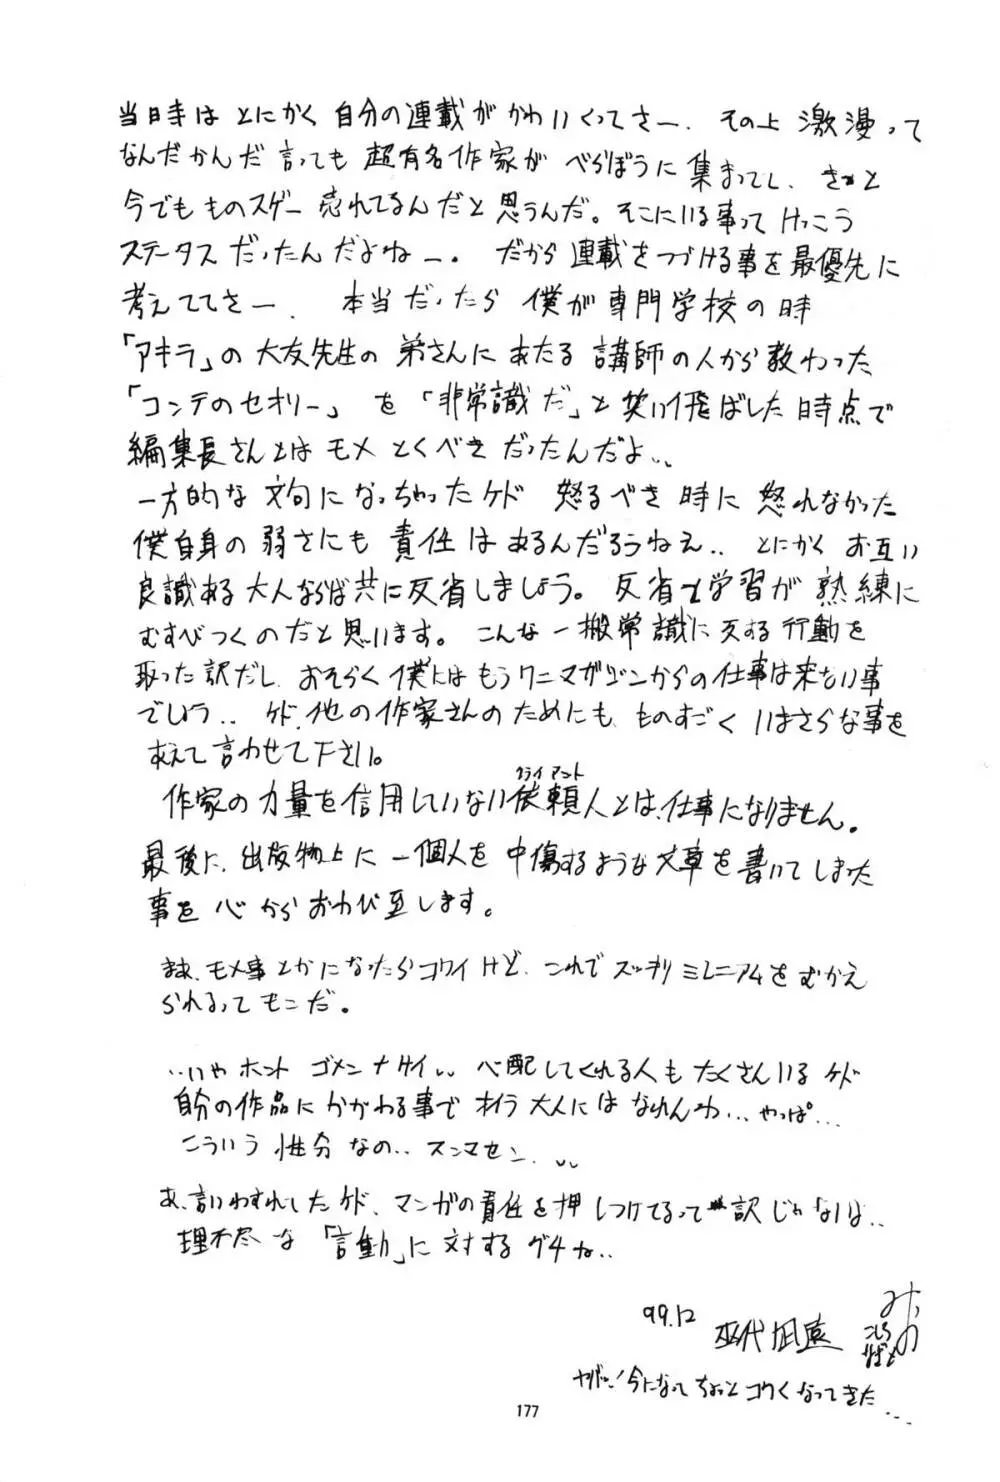 当時は とにかく 自分の連載が かわいくってさー. その上 激漫って
なんだかんだ 言っても 超有名作家が べらぼうに 集まってし、きっと
今でも ものスゲー 売れてるんだと 思うんだ。そこにいる事って けっこう
ステータス だったんだよねー. だから 連載を つづける事を 最優先に
考えててさー. 本当だったら 僕が 専門学校の時
「アキラ」の 大友先生の 弟さんに あたる 講師の人から 教わった
「コンテのセオリー」 を 「非常識だ」と 笑い飛ばした 時点で
編集長さんとは モメとくべきだったんだよ..
一方的な 文句に なっちゃったケド 怒るべき 時に 怒れなかった
僕自身の 弱さにも 責任は あるんだろうねえ.. とにかく お互い
良識ある 大人ならば 共に 反省しましょう。 反省と学習が 熟練に
むすびつくのだと 思います。 こんな 一搬常識に 反する 行動を
取った 訳だし、おそらく 僕には もう ワニマガジンからの 仕事は 来ない事
でしょう.. ケド、他の 作家さんの ためにも、ものすごく いまさらな 事を
敢えて 言わせて 下さい。
クライアント
作家の 力量を 信用していない 依頼人とは、仕事になりません。
最後に、出版物上に 一個人を 中傷するような 文章を 書いて しまった
事を 心から おわび 至します。
まあ、モメ事とかに なったら コワイけど、これで スッキリ ミレニアムを むかえ
られるって モンだ。
..いや ホント ゴメンナサイ.. 心配してくれる人も たくさんいる ケド
自分の 作品に かかわる 事で オイラ 大人には なれんわ... やっぱ...
こういう 性分 なの.. スンマセン..
あ、言いわすれしたケド、マンガの 責任を 押しつけてるって 訳じゃ ないよ..
理不尽な 「言動」に 対する グチね..
99.12
巫代凪遠
みの
こしろ
なぎと
ヤバッ! 今になって ちょっと コワくなってきた...
177